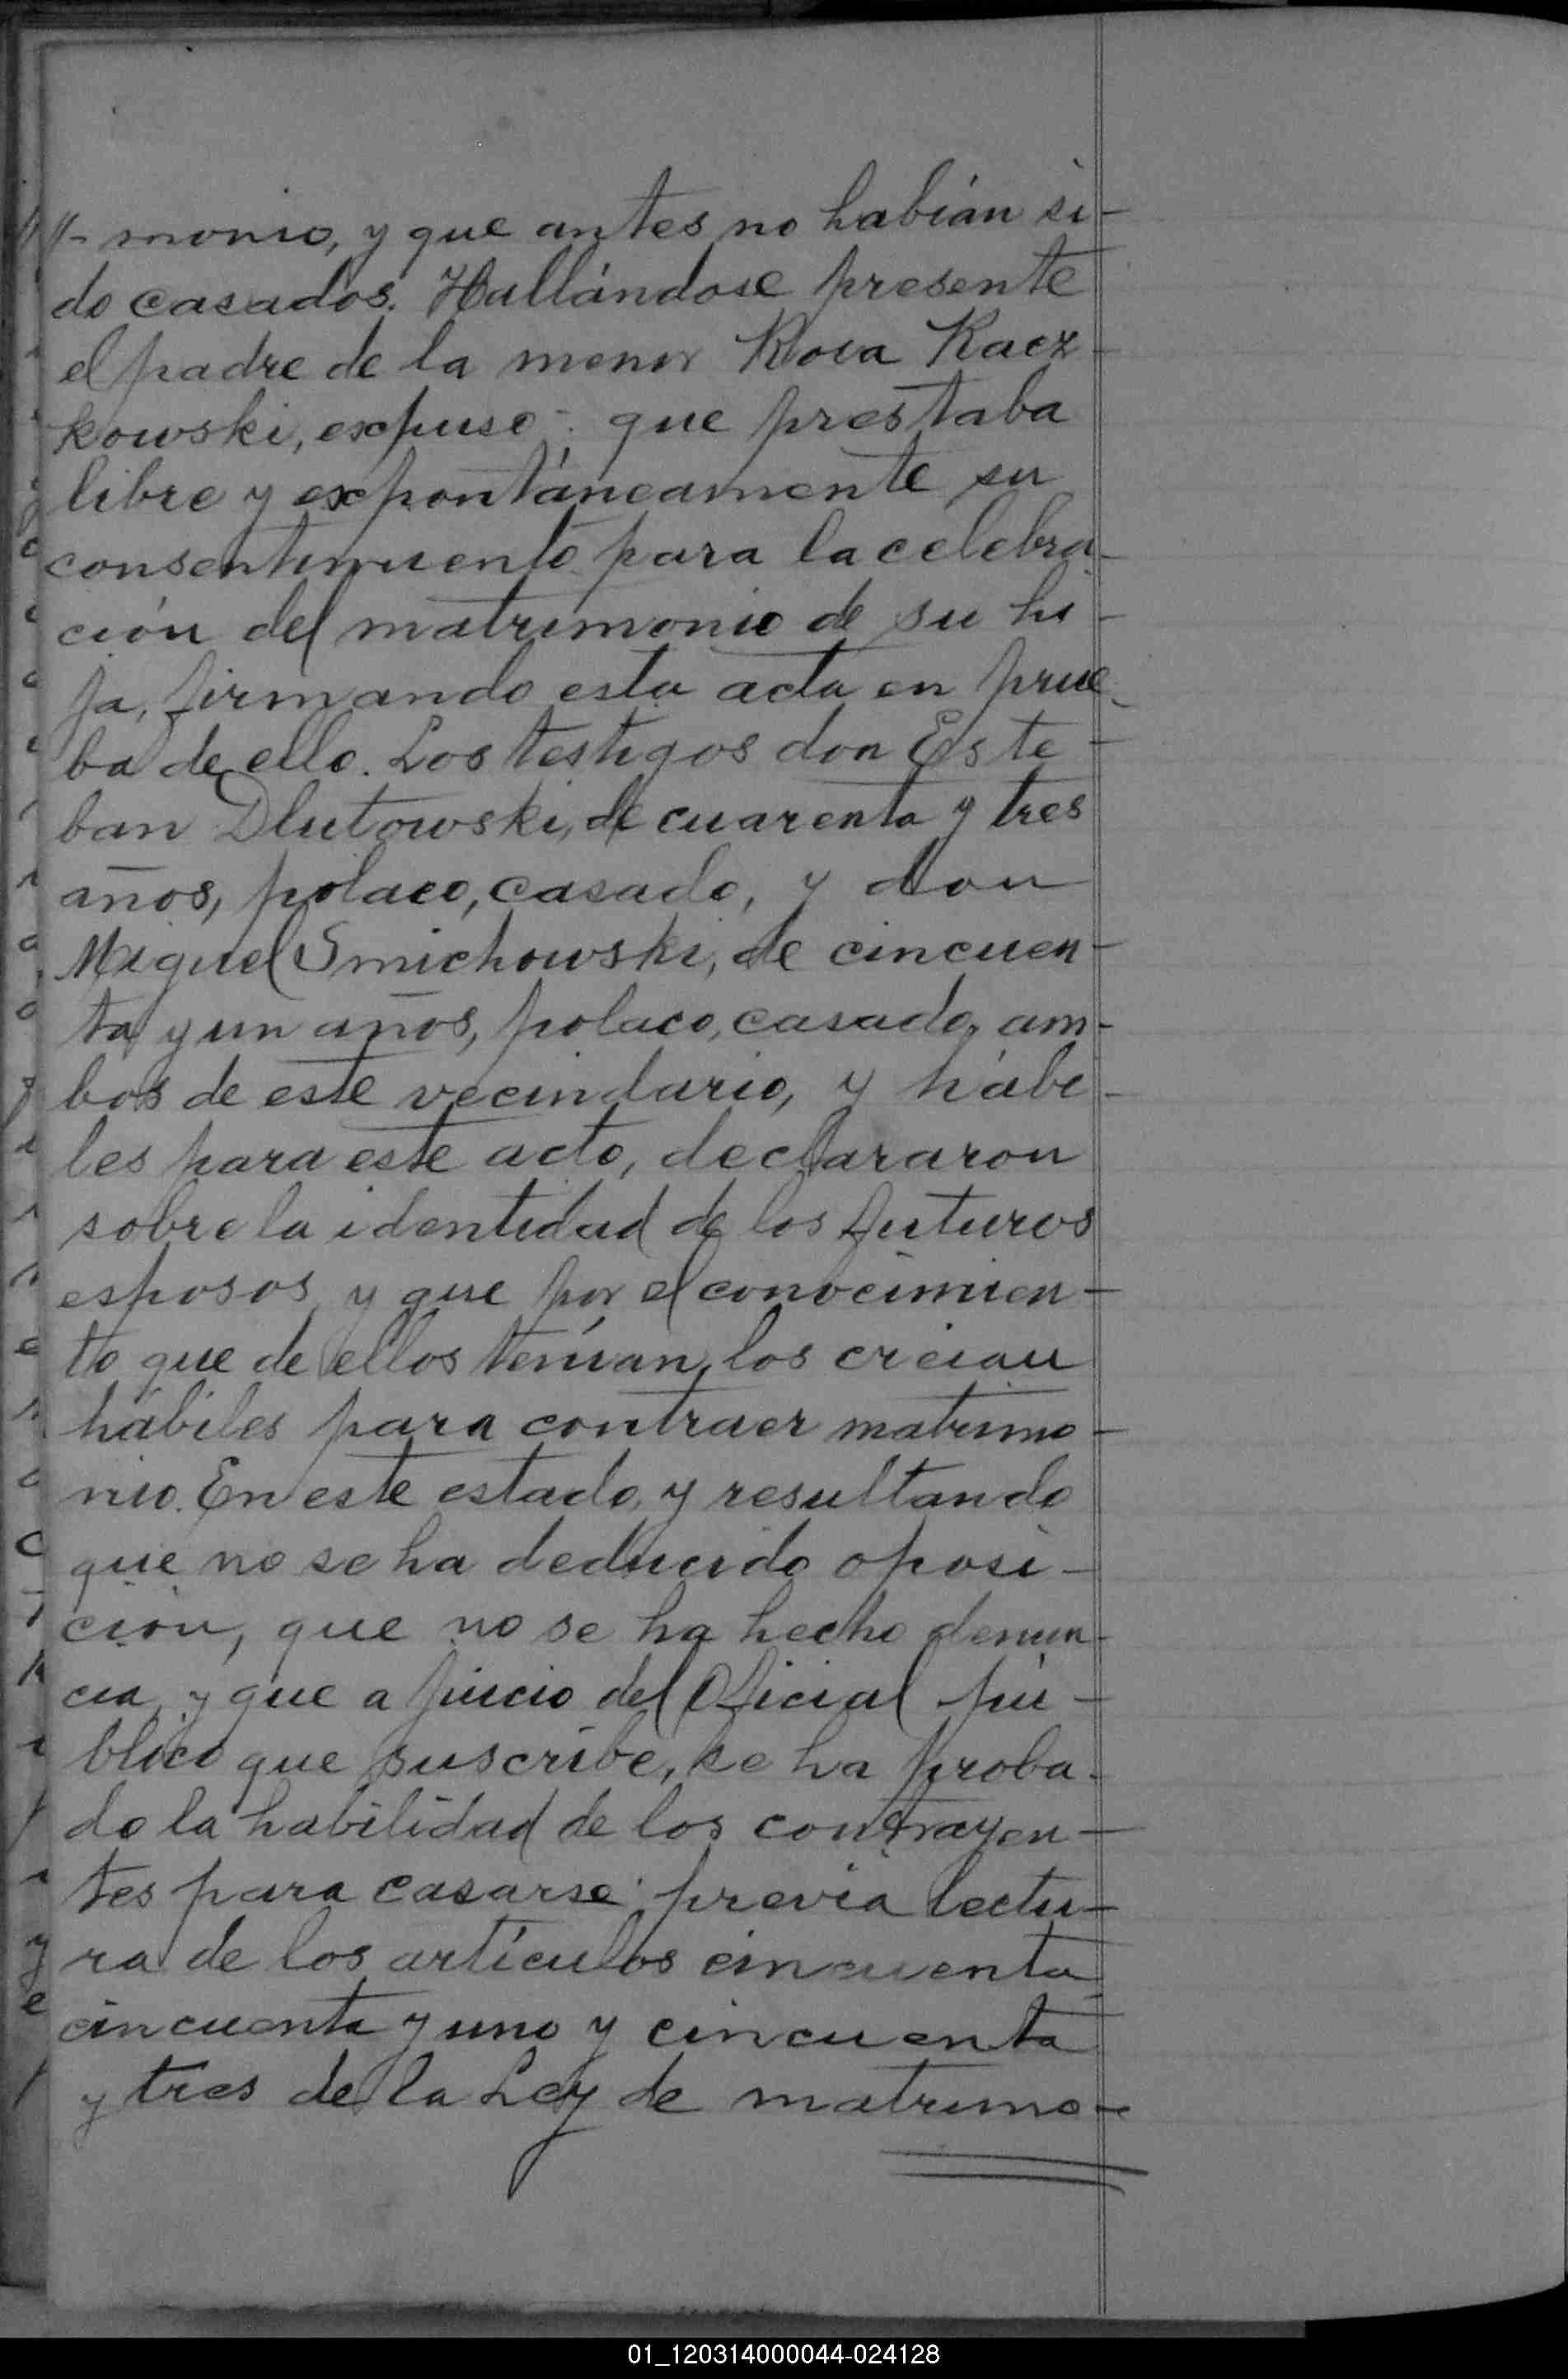 //- monio, y que antes no habían si-
do casados. Hallándose presente
el padre de la menor Rosa Kacz-
kowski, expuso: que prestaba
libre y expontáneamente su
consentimiento para la celebra-
ción del matrimonio de su hi-
ja, firmando esta acta en prue-
ba de ello. Los testigos don Este-
ban Dlutowski, de cuarenta y tres
años, polaco, casado, y don
Miguel Smichowski, de cincuen-
ta y un años, polaco, casado, am-
bos de este vecindario, y hábi-
les para este acto, declararon
sobre la identidad de los futuros
esposos, y que por el conocimien-
to que de ellos tenían, los creían
hábiles para contraer matrimo-
nio. En este estado, y resultando
que no se ha deducido oposi-
ción, que no se ha hecho denun-
cia, y que a juicio del Oficial pú-
blico que suscribe, se ha proba-
do la habilidad de los contrayen-
tes para casarse: previa lectu-
ra de los artículos cincuenta,
cincuenta y uno y cincuenta
y tres de la Ley de matrimo-
01_120314000044-024128